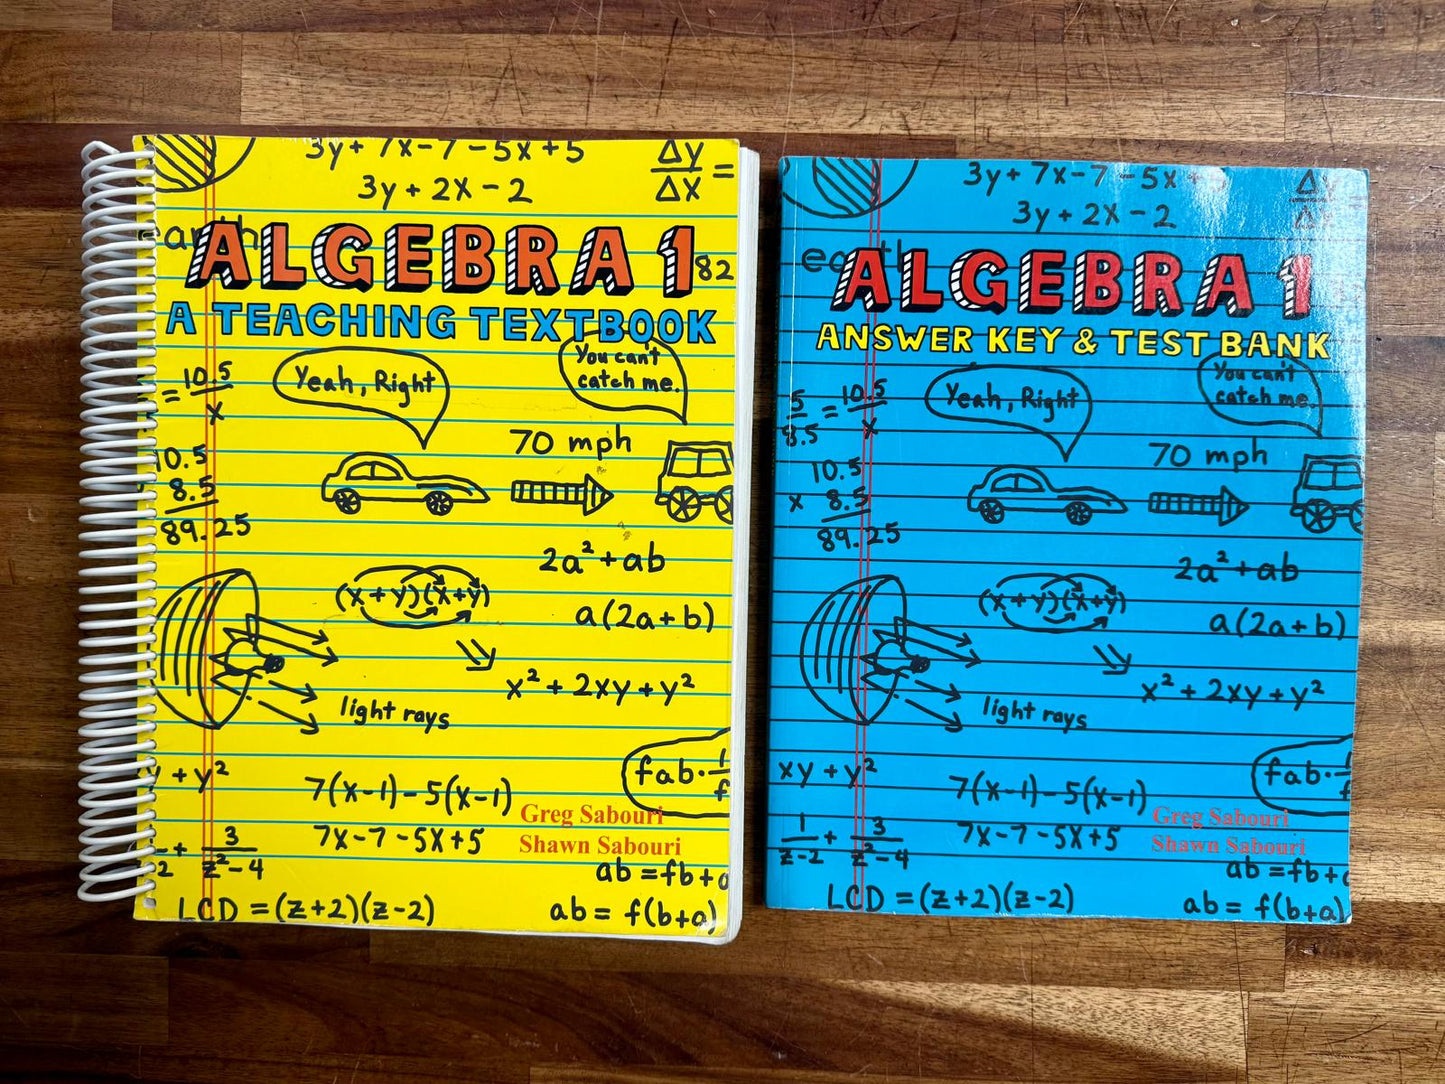 3y + 7x - 7 - 5x + 5
Δy
Δx =
3y + 2x - 2
earth
ALGEBRA 1
82
A TEACHING TEXTBOOK
You can't
catch me.
Yeah, Right
= 10.5
x
70 mph
10.5
8.5
89.25
2a² + ab
(x + y)(x + y)
a(2a + b)
x² + 2xy + y²
light rays
y + y²
fab · 1
f
7(x-1) - 5(x-1)
Greg Sabouri
7x - 7 - 5x + 5
Shawn Sabouri
2 + 3
z² - 4
ab = fb + a
LCD = (z+2)(z-2)
ab = f(b+a)
3y + 7x - 7 - 5x + 5
Δy
Δx
3y + 2x - 2
earth
ALGEBRA 1
ANSWER KEY & TEST BANK
You can't
catch me.
Yeah, Right
5 = 10.5
8.5 x
70 mph
10.5
x 8.5
89.25
2a² + ab
(x + y)(x + y)
a(2a + b)
x² + 2xy + y²
light rays
xy + y²
fab · 1
f
7(x-1) - 5(x-1)
Greg Sabouri
1 + 3
z-2 z² - 4
7x - 7 - 5x + 5
Shawn Sabouri
ab = fb + a
LCD = (z+2)(z-2)
ab = f(b+a)